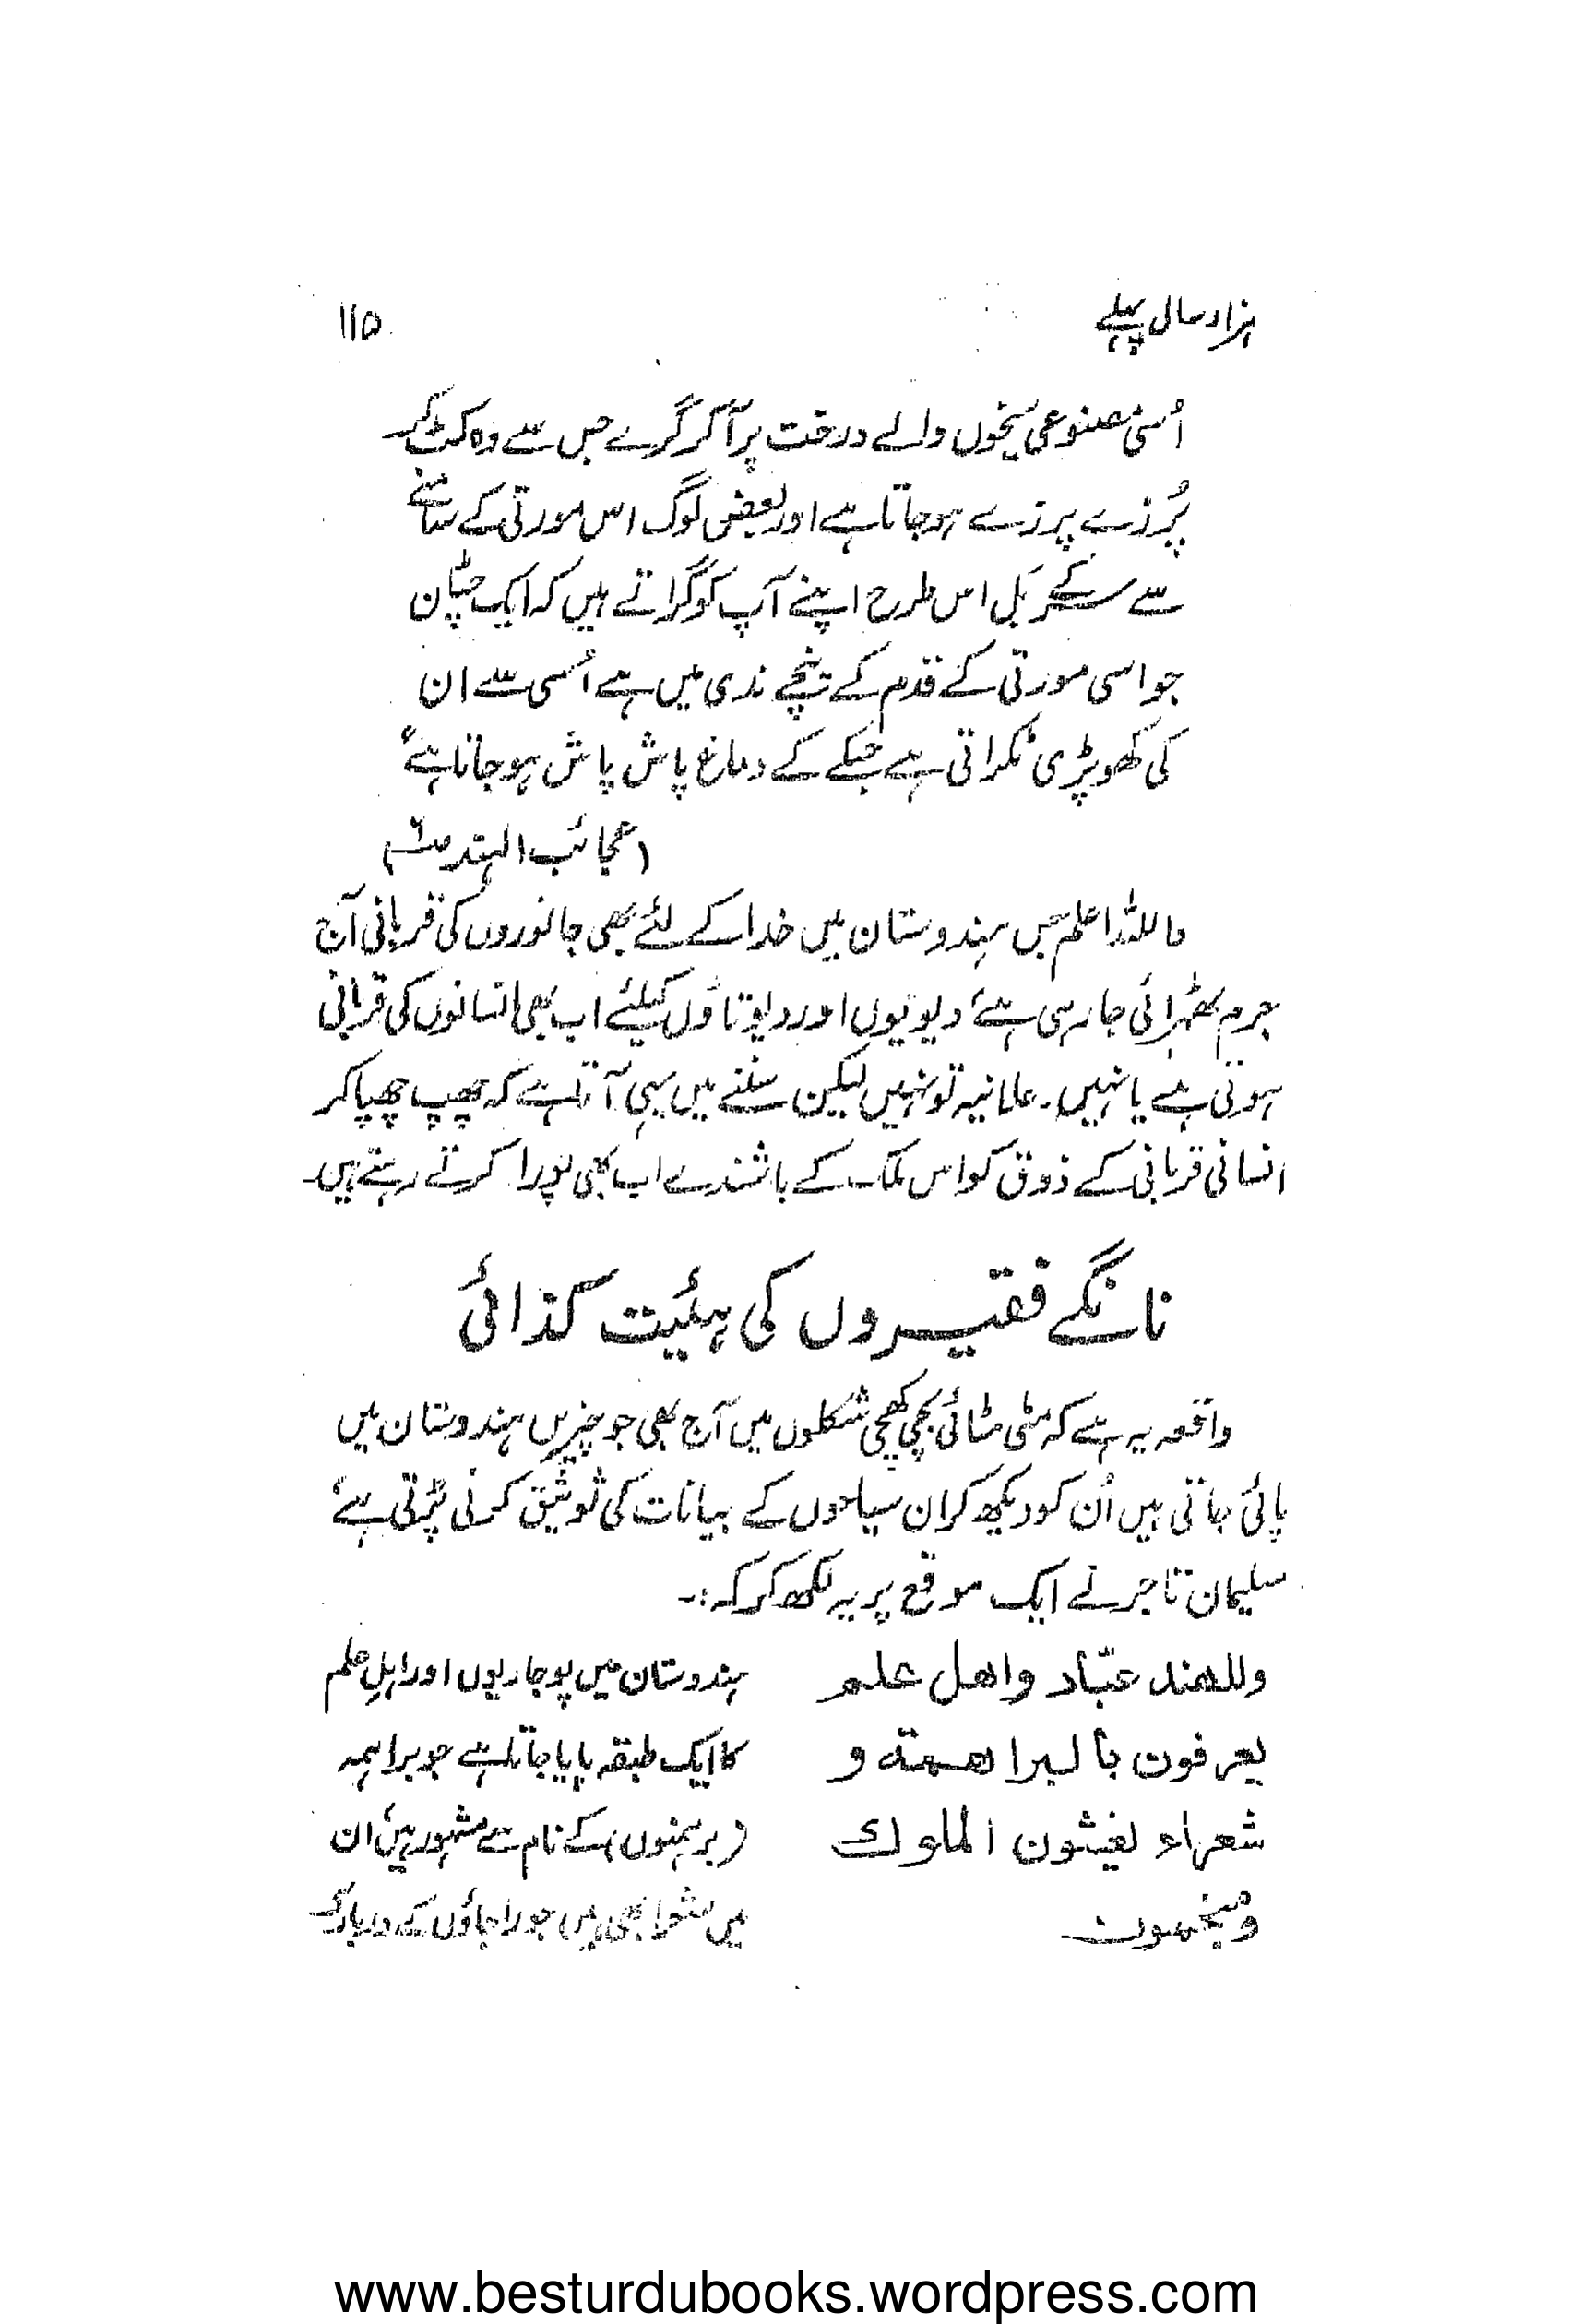 ہزار سال پہلے ۱۱۵
اُسی مصنوعی سیخوں والے درخت پر آ کر گرے جس سے وہ کٹ کر
پُرزے پرزے ہوجاتا ہے اور بعض لوگ اس مورتی کے سامنے
سے سر کے بَل اس طرح اپنے آپ کو گراتے ہیں کہ ایک چٹان
جو اسی مورتی کے قدم کے نیچے ندی میں ہے اُسی سے ان
کی کھوپڑی ٹکراتی ہے جسکے کے دماغ پاش پاش ہوجاتا ہے“
(عجائب الہند
واللہ اعلم جس ہندوستان میں خدا کے لئے بھی جانوروں کی قربانی آج
جرم ٹھہرائی جا رہی ہے، دیویوں اور دیوتاؤں کیلئے اب بھی انسانوں کی قربانی
ہوتی ہے یا نہیں۔ علانیہ تو نہیں لیکن سننے میں یہی آتا ہے کہ چھپ چھپا کر
انسانی قربانی کے ذوق کو اس ملک کے باشندے اب بھی پورا کرتے رہتے ہیں۔
نانگے فقیروں کی ہئیت کذائی
واقعہ یہ ہے کہ مٹی مٹائی بچی کھچی شکلوں میں آج بھی جو چیزیں ہندوستان میں
پائی جاتی ہیں اُن کو دیکھ کر ان سیاحوں کے بیانات کی توثیق کرنی پڑتی ہے،
سلیمان تاجر نے ایک موقع پر یہ لکھ کر کہ:۔
وللهند عبّاد واهل علم
يعرفون بالبراهمة و
شعراء يغشون الملوك
ومنجمون
ہندوستان میں پوجاریوں اور اہلِ علم
کا ایک طبقہ پایا جاتا ہے جو براہمہ
(برہمنوں) کے نام سے مشہور ہیں، ان
میں شعرا بھی ہیں جو راجاؤں کے دربار کے
www.besturdubooks.wordpress.com